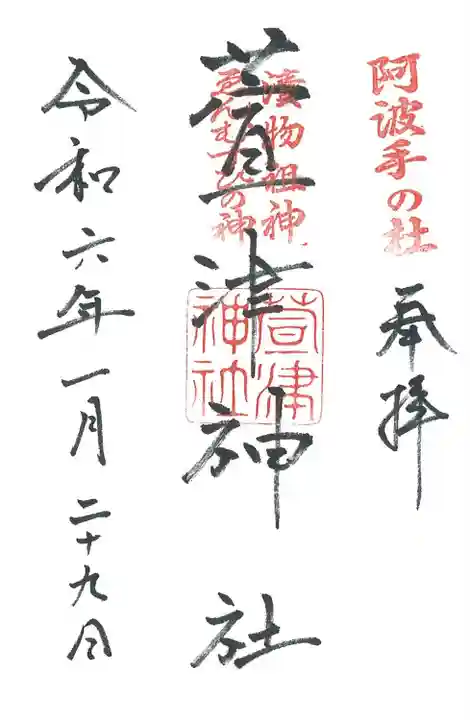 阿波手の杜
奉拝
漬物祖神
えんむすびの神
萱津神社
萱津神社
令和六年一月二十九日